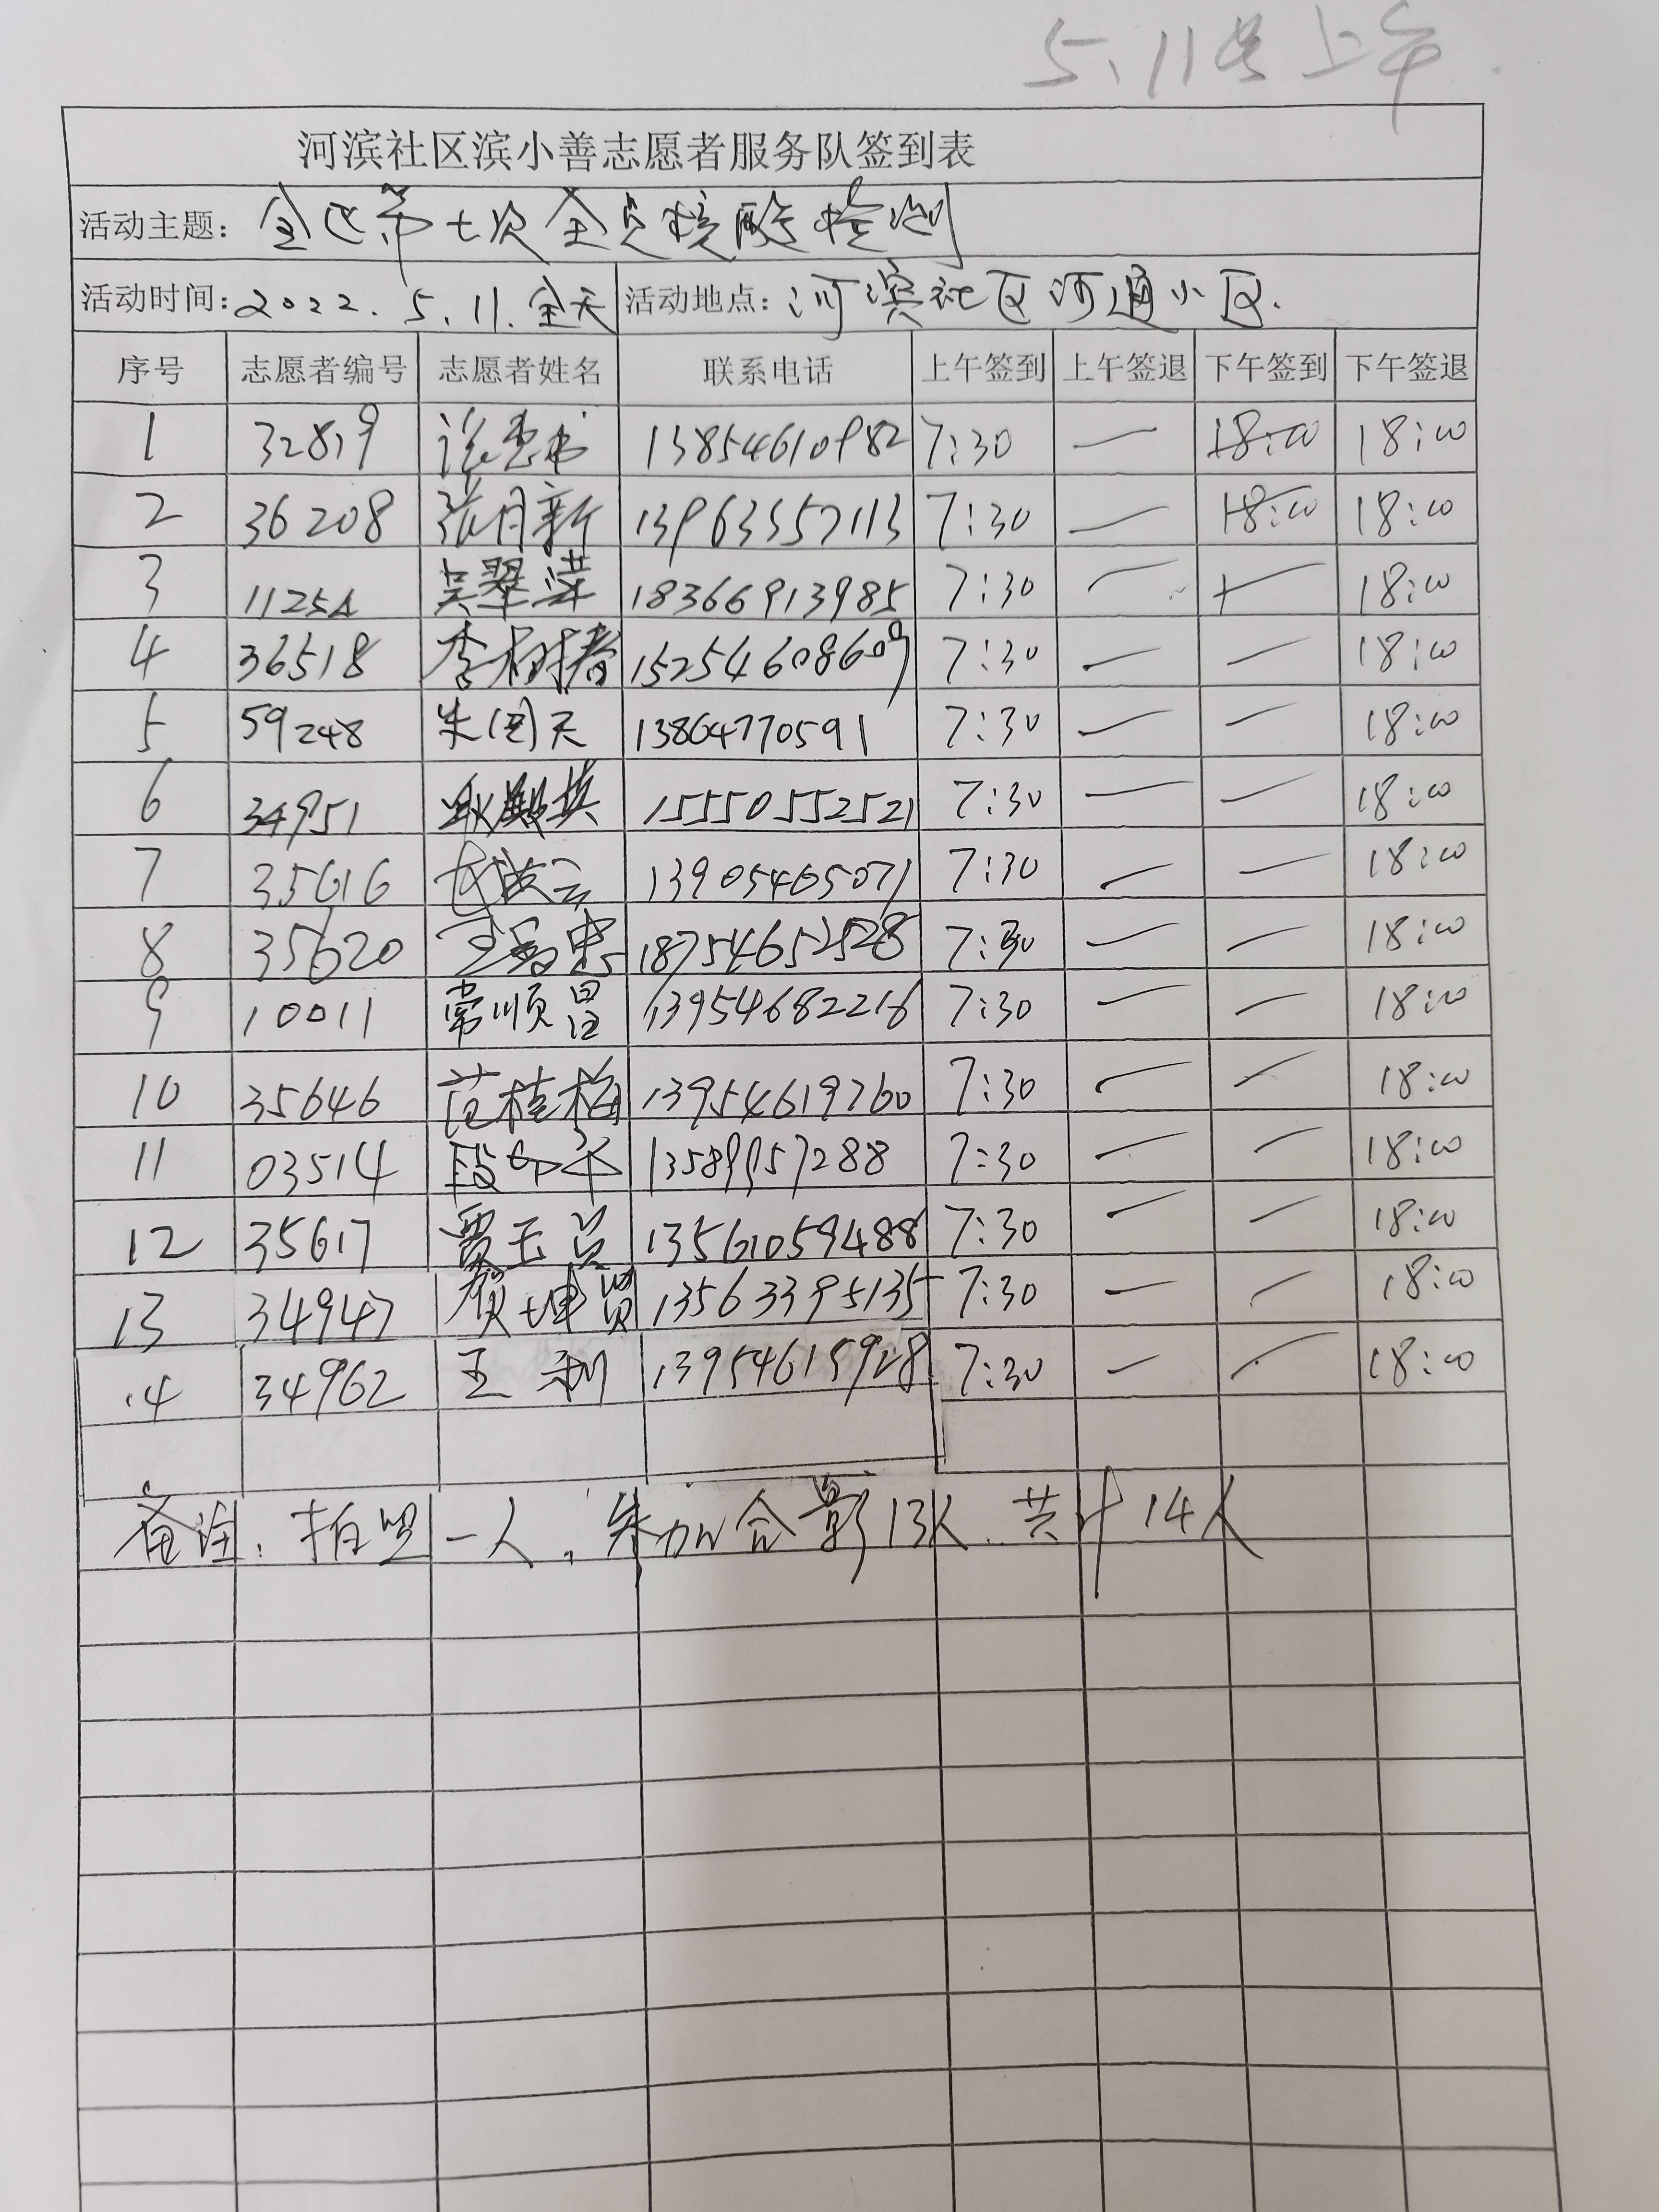 5.11号上午
河滨社区滨小善志愿者服务队签到表
活动主题: 全区第七次全员核酸检测
活动时间: 2022.5.11.全天 活动地点: 河滨社区河通小区.
序号 志愿者编号 志愿者姓名 联系电话 上午签到 上午签退 下午签到 下午签退
1 32819 13854610982 7:30 — 18:00 18:00
2 36208 张月新 13963557113 7:30 — 18:00 18:00
3 11254 吴翠萍 18366913985 7:30 — — 18:00
4 36518 李树春 15254608609 7:30 — — 18:00
5 59248 朱国天 13864770591 7:30 — — 18:00
6 34951 15550552521 7:30 — — 18:00
7 35616 13905465071 7:30 — — 18:00
8 35620 18754652528 7:30 — — 18:00
9 10011 常顺昌 13954682216 7:30 — — 18:00
10 35646 范桂梅 13954619760 7:30 — — 18:00
11 03514 13589957288 7:30 — — 18:00
12 35617 贾玉兰 13561059488 7:30 — — 18:00
13 34947 贺坤贤 13563395135 7:30 — — 18:00
14 34962 王利 13954615928 7:30 — — 18:00
备注: 拍照一人, 参加合影13人. 共计14人